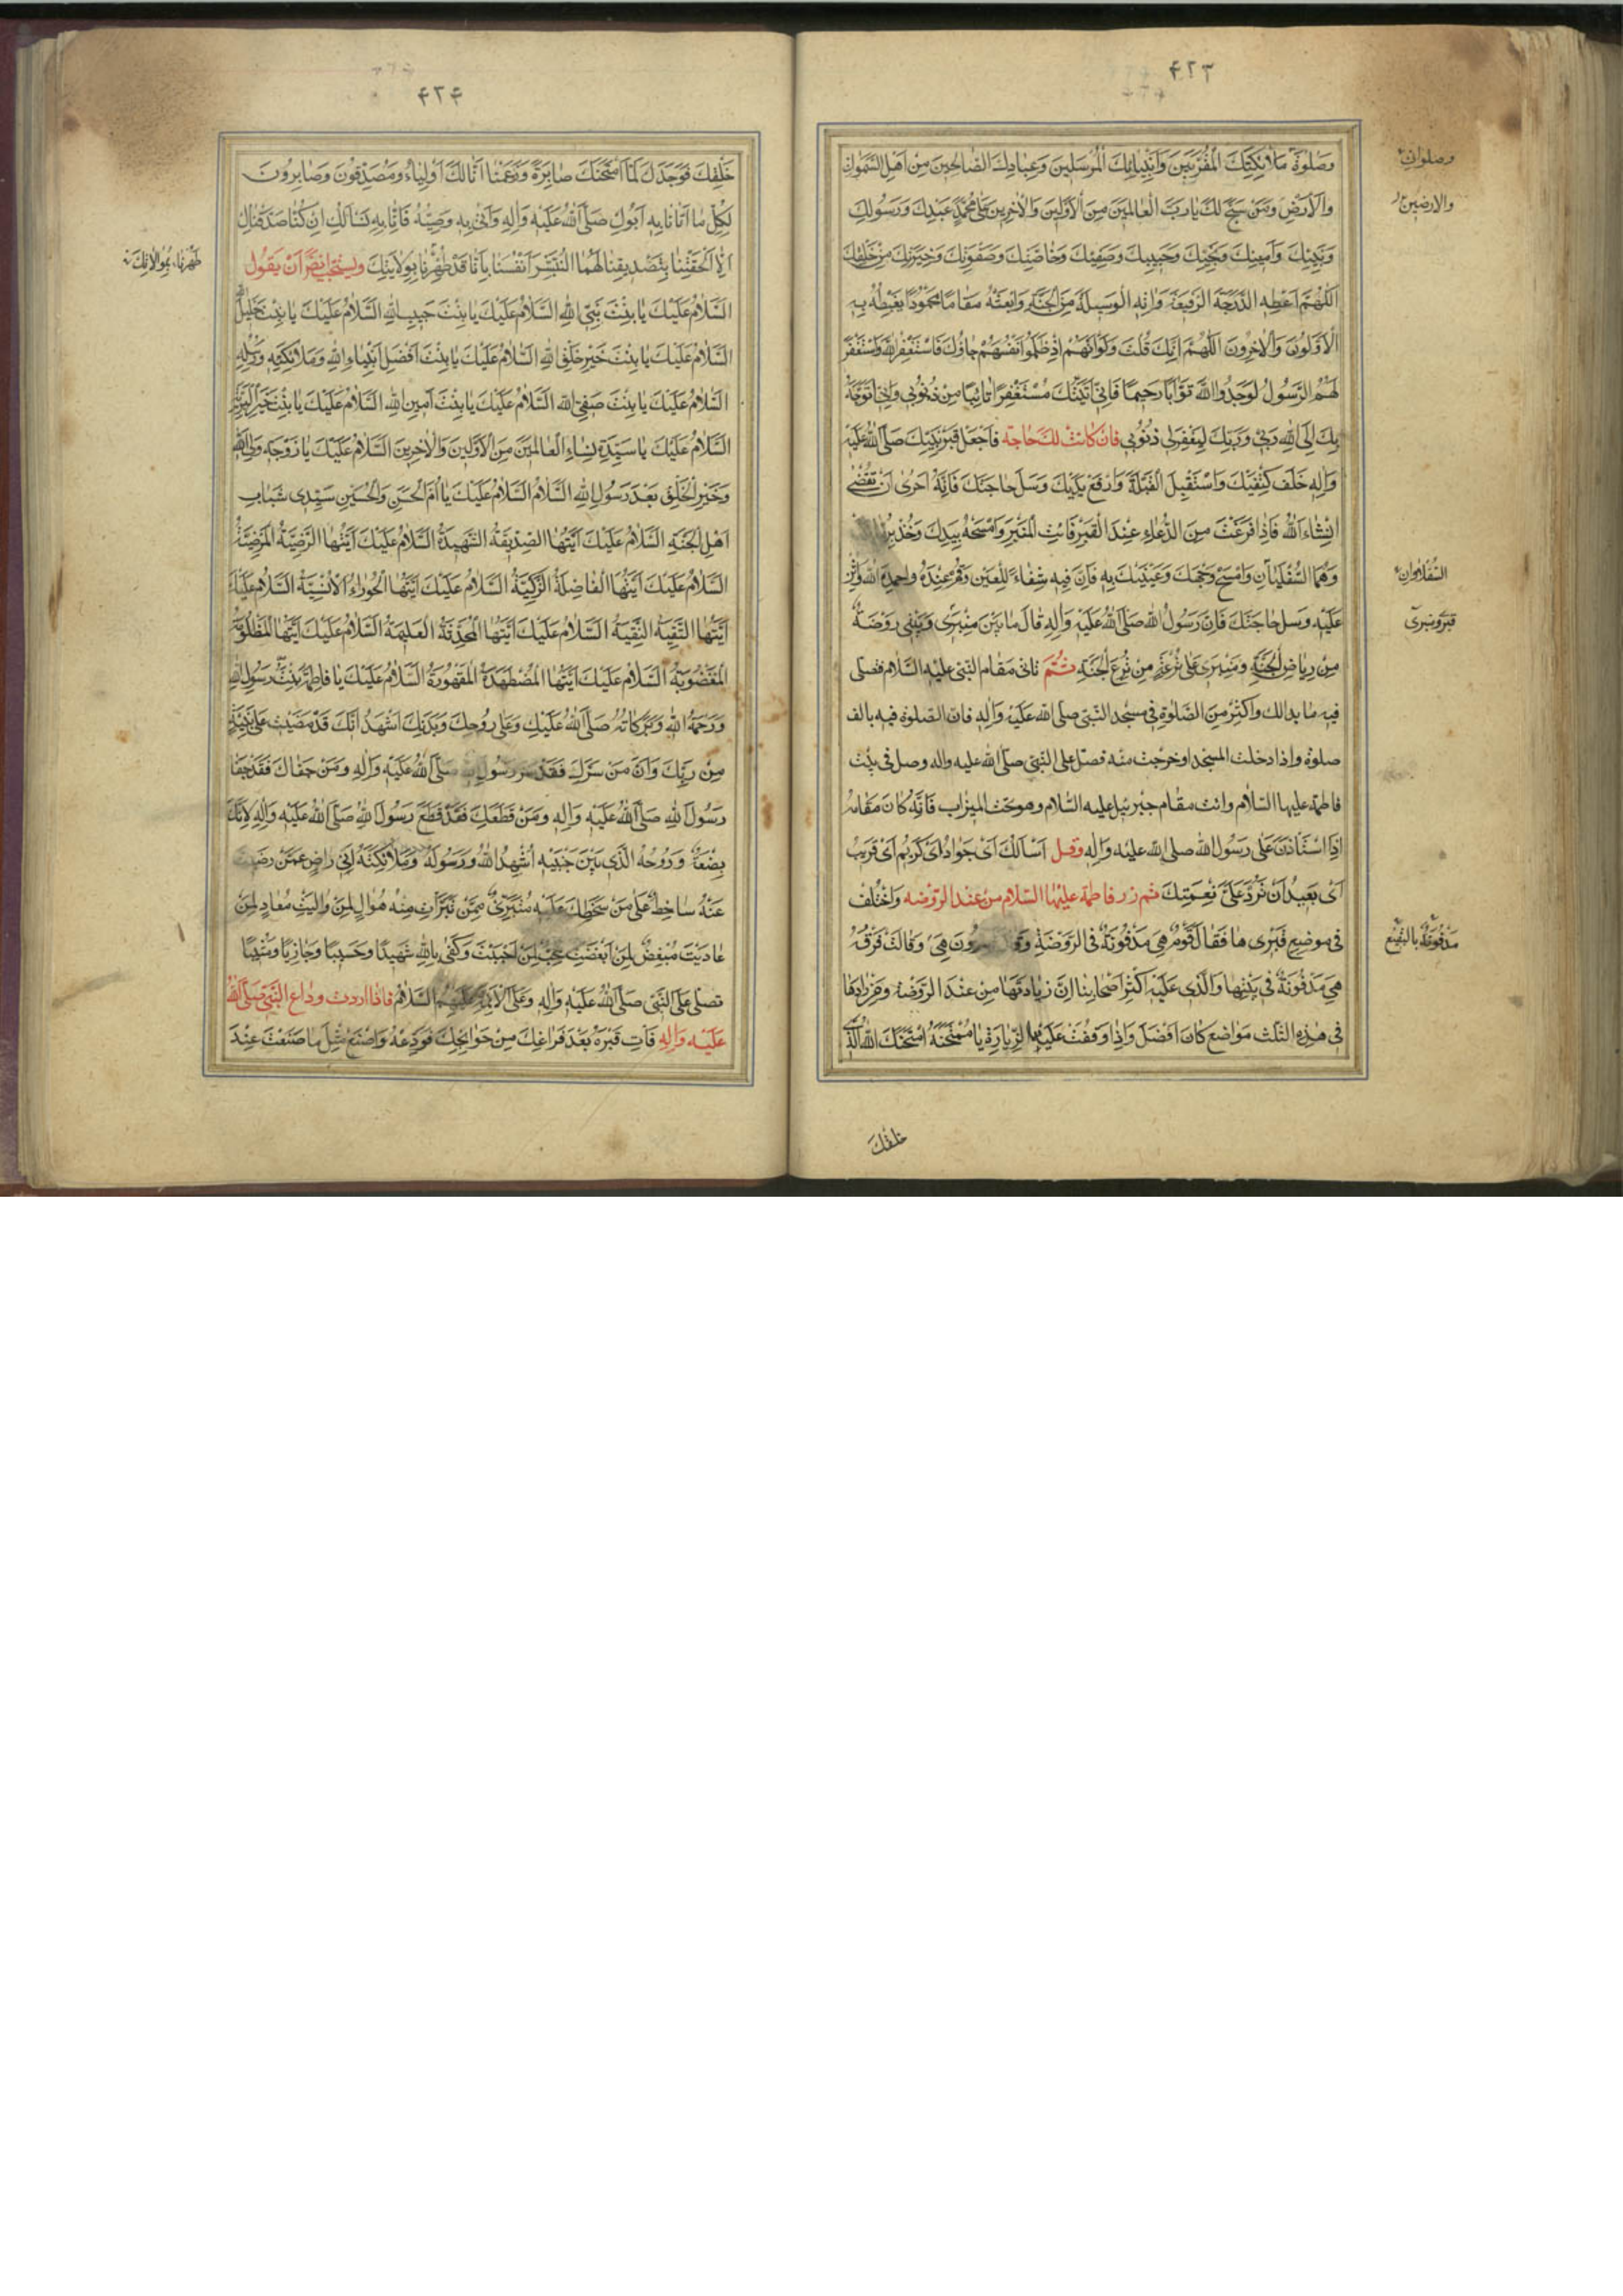 ۴۲۳
وَصَلٰوةَ مَلٰائِكَتِكَ الْمُقَرَّبِينَ وَاَنْبِيٰائِكَ الْمُرْسَلِينَ وَعِبٰادِكَ الصّٰالِحِينَ مِنْ اَهْلِ السَّمٰوٰاتِ
وَالْاَرْضِ وَمَنْ سَبَّحَ لَكَ يٰارَبَّ الْعٰالَمِينَ مِنَ الْاَوَّلِينَ وَالْاٰخِرِينَ عَلىٰ مُحَمَّدٍ عَبْدِكَ وَرَسُولِكَ
وَنَبِيِّكَ وَاَمِينِكَ وَنَجِيِّكَ وَحَبِيبِكَ وَصَفِيِّكَ وَخٰاصَّتِكَ وَصَفْوَتِكَ وَخِيَرَتِكَ مِنْ خَلْقِكَ
اَللّٰهُمَّ اَعْطِهِ الدَّرَجَةَ الرَّفِيعَةَ وَاٰتِهِ الْوَسِيلَةَ مِنَ الْجَنَّةِ وَابْعَثْهُ مَقٰامًا مَحْمُودًا يَغْبِطُهُ بِهِ
الْاَوَّلُونَ وَالْاٰخِرُونَ اَللّٰهُمَّ اِنَّكَ قُلْتَ وَلَوْ اَنَّهُمْ اِذْ ظَلَمُوا اَنْفُسَهُمْ جٰاؤُكَ فَاسْتَغْفَرُوا اللّٰهَ وَاسْتَغْفَرَ
لَهُمُ الرَّسُولُ لَوَجَدُوا اللّٰهَ تَوَّابًا رَحِيمًا فَاِنّي اَتَيْتُكَ مُسْتَغْفِرًا تٰائِبًا مِنْ ذُنُوبِي وَاِنّي اَتَوَجَّهُ
بِكَ اِلَى اللّٰهِ رَبّي وَرَبِّكَ لِيَغْفِرَلِي ذُنُوبِي فَاِنْ كٰانَتْ لَكَ حٰاجَة فَاجْعَلْ قَبْرَ نَبِيِّكَ صَلَّى اللّٰهُ عَلَيْهِ
وَاٰلِهِ خَلْفَ كَتِفَيْكَ وَاسْتَقْبِلِ الْقِبْلَةَ وَارْفَعْ يَدَيْكَ وَسَلْ حٰاجَتَكَ فَاِنَّهُ اَحْرٰى اَنْ تُقْضٰى
اِنْشٰاءَ اللّٰهُ فَاِذٰا فَرَغْتَ مِنَ الدُّعٰاءِ عِنْدَ الْقَبْرِ فَائْتِ الْمِنْبَرَ وَامْسَحْهُ بِيَدِكَ وَخُذْ
وَهُمَا السُّفْلٰيٰانِ وَامْسَحْ وَجْهَكَ وَعَيْنَيْكَ بِهِ فَاِنَّ فِيهِ شِفٰاءً لِلْعَيْنِ وَقُمْ عِنْدَهُ وَاحْمِدِ اللّٰهَ وَاَثْنِ
عَلَيْهِ وَسَلْ حٰاجَتَكَ فَاِنَّ رَسُولَ اللّٰهِ صَلَّى اللّٰهُ عَلَيْهِ وَاٰلِهِ قٰالَ مٰا بَيْنَ مِنْبَرِي وَبَيْتِي رَوْضَةٌ
مِنْ رِيٰاضِ الْجَنَّةِ وَمِنْبَرِي عَلىٰ تُرْعَةٍ مِنْ تُرَعِ الْجَنَّةِ ثُمَّ تاتى مَقام النَّبى عليه السَّلام فصلّى
فيه ما بدا لك وَاَكْثِرْ مِنَ الصَّلٰوةِ فِي مسجد النَّبِي صلى الله عَلَيْهِ وَاٰلِهِ فان الصّلوة فيه بالف
صلوة واذا دخلت المسجد او خرجت منه فصل على النَّبِي صلى الله عليه واله وصل فى بيت
فاطمة عليها السّلام وائت مقام جبرئيل عليه السّلام وهو تحت الميزاب فَاِنَّهُ كٰانَ مَقٰامَهُ
اِذَا اسْتَأْذَنَ عَلىٰ رسول الله صلى الله عليه وَاٰلِهِ وقل اَسْاَلُكَ اَىْ جَوٰادُ اَىْ كَرِيمُ اَىْ قَرِيبُ
اَىْ بَعِيدُ اَنْ تَرُدَّ عَلَىَّ نِعْمَتَكَ ثم زر فاطمة عليها السّلام من عند الرّوضه وَاخْتُلِفَ
فى موضع قَبْرِهٰا فَقٰالَ قَوْمٌ هِيَ مَدْفُونَةٌ فِي الرَّوْضَةِ هِيَ وَقٰالَتْ فِرْقَةٌ
هِيَ مَدْفُونَةٌ فِي بَيْتِهٰا وَالَّذِي عَلَيْهِ اَكْثَرُ اَصْحٰابِنٰا اِنَّ زِيٰارَتَهٰا مِنْ عِنْدَ الرَّوْضَةِ وَمَنْ زٰارَهٰا
فِي هٰذِهِ الثَّلٰثِ مَوٰاضِعَ كٰانَ اَفْضَلَ وَاِذٰا وَقَفْتَ عَلَيْهٰا لِلزِّيٰارَةِ يٰا مُمْتَحَنَةُ امْتَحَنَكِ اللّٰهُ الَّذِي
خلقك
وصلوات
والارضين
السُّفلاوان
قبرى ومنبرى
مَدْفُونَةٌ بالبقيع
۴۲۴
خَلَقَكِ فَوَجَدَكِ لِمَا امْتَحَنَكِ صٰابِرَةً وَزَعَمْنٰا اَنّٰا لَكِ اَوْلِيٰاءُ وَمُصَدِّقُونَ وَصٰابِرُونَ
لِكُلِّ مٰا اَتٰانٰا بِهِ اَبُوكِ صَلَّى اللّٰهُ عَلَيْهِ وَاٰلِهِ وَاَتىٰ بِهِ وَصِيُّهُ فَاِنّٰا نَسْاَلُكِ اِنْ كُنّٰا صَدَّقْنٰاكِ
اِلّٰا اَلْحَقْتِنٰا بِتَصْدِيقِنٰا لَهُمٰا لِنُبَشِّرَ اَنْفُسَنٰا بِاَنّٰا قَدْ طَهُرْنٰا بِوِلٰايَتِكِ ويستحبّ ايضًا اَنْ يَقُولَ
اَلسَّلٰامُ عَلَيْكِ يٰا بِنْتَ نَبِيِّ اللّٰهِ اَلسَّلٰامُ عَلَيْكِ يٰا بِنْتَ حَبِيبِ اللّٰهِ اَلسَّلٰامُ عَلَيْكِ يٰا بِنْتَ خَلِيلِ اللّٰهِ
اَلسَّلٰامُ عَلَيْكِ يٰا بِنْتَ خَيْرِ خَلْقِ اللّٰهِ اَلسَّلٰامُ عَلَيْكِ يٰا بِنْتَ اَفْضَلِ اَنْبِيٰاءِ اللّٰهِ وَمَلٰائِكَتِهِ وَرُسُلِهِ
اَلسَّلٰامُ عَلَيْكِ يٰا بِنْتَ صَفِيِّ اللّٰهِ اَلسَّلٰامُ عَلَيْكِ يٰا بِنْتَ اَمِينِ اللّٰهِ اَلسَّلٰامُ عَلَيْكِ يٰا بِنْتَ خَيْرِ الْبَرِيَّةِ
اَلسَّلٰامُ عَلَيْكِ يٰا سَيِّدَةَ نِسٰاءِ الْعٰالَمِينَ مِنَ الْاَوَّلِينَ وَالْاٰخِرِينَ اَلسَّلٰامُ عَلَيْكِ يٰا زَوْجَةَ وَلِيِّ اللّٰهِ
وَخَيْرِ الْخَلْقِ بَعْدَ رَسُولِ اللّٰهِ اَلسَّلٰامُ اَلسَّلٰامُ عَلَيْكِ يٰا اُمَّ الْحَسَنِ وَالْحُسَيْنِ سَيِّدَي شَبٰابِ
اَهْلِ الْجَنَّةِ اَلسَّلٰامُ عَلَيْكِ اَيَّتُهَا الصِّدِّيقَةُ الشَّهِيدَةُ اَلسَّلٰامُ عَلَيْكِ اَيَّتُهَا الرَّضِيَّةُ الْمَرْضِيَّةُ
اَلسَّلٰامُ عَلَيْكِ اَيَّتُهَا الْفٰاضِلَةُ الزَّكِيَّةُ اَلسَّلٰامُ عَلَيْكِ اَيَّتُهَا الْحَوْرٰاءُ الْاِنْسِيَّةُ اَلسَّلٰامُ عَلَيْكِ
اَيَّتُهَا التَّقِيَّةُ النَّقِيَّةُ اَلسَّلٰامُ عَلَيْكِ اَيَّتُهَا الْمُحَدَّثَةُ الْعَلِيمَةُ اَلسَّلٰامُ عَلَيْكِ اَيَّتُهَا الْمَظْلُومَةُ
الْمَغْصُوبَةُ اَلسَّلٰامُ عَلَيْكِ اَيَّتُهَا الْمُضْطَهَدَةُ الْمَقْهُورَةُ اَلسَّلٰامُ عَلَيْكِ يٰا فٰاطِمَةُ بِنْتَ رَسُولِ اللّٰهِ
وَرَحْمَةُ اللّٰهِ وَبَرَكٰاتُهُ صَلَّى اللّٰهُ عَلَيْكِ وَعَلىٰ رُوحِكِ وَبَدَنِكِ اَشْهَدُ اَنَّكِ قَدْ مَضَيْتِ عَلىٰ بَيِّنَةٍ
مِنْ رَبِّكِ وَاَنَّ مَنْ سَرَّكِ فَقَدْ سَرَّ رَسُولَ اللّٰهِ صَلَّى اللّٰهُ عَلَيْهِ وَاٰلِهِ وَمَنْ جَفٰاكِ فَقَدْ جَفٰا
رَسُولَ اللّٰهِ صَلَّى اللّٰهُ عَلَيْهِ وَاٰلِهِ وَمَنْ قَطَعَكِ فَقَدْ قَطَعَ رَسُولَ اللّٰهِ صَلَّى اللّٰهُ عَلَيْهِ وَاٰلِهِ لِاَنَّكِ
بِضْعَةٌ وَرُوحُهُ الَّذِي بَيْنَ جَنْبَيْهِ اُشْهِدُ اللّٰهَ وَرَسُولَهُ وَمَلٰائِكَتَهُ اَنّي رٰاضٍ عَمَّنْ رَضِيتِ
عَنْهُ سٰاخِطٌ عَلىٰ مَنْ سَخِطْتِ عَلَيْهِ مُتَبَرِّئٌ مِمَّنْ تَبَرَّأْتِ مِنْهُ مُوٰالٍ لِمَنْ وٰالَيْتِ مُعٰادٍ لِمَنْ
عٰادَيْتِ مُبْغِضٌ لِمَنْ اَبْغَضْتِ مُحِبٌّ لِمَنْ اَحْبَبْتِ وَكَفىٰ بِاللّٰهِ شَهِيدًا وَحَسِيبًا وَجٰازِيًا وَمُثِيبًا
تصلى عَلَى النَّبِي صَلَّى اللّٰهُ عَلَيْهِ وَاٰلِهِ وَعَلَى الْاَئِمَّةِ عَلَيْهِمُ السَّلٰامُ فاذا اردت وداع النَّبِيّ صَلَّى اللّٰهُ
عَلَيْهِ وَاٰلِهِ فَأْتِ قَبْرَهُ بَعْدَ فَرٰاغِكَ مِنْ حَوٰائِجِكَ فَوَدِّعْهُ وَاصْنَعْ مِثْلَ مٰا صَنَعْتَ عِنْدَ
طَهُرْنٰا بِمُوٰالٰاتِكَ